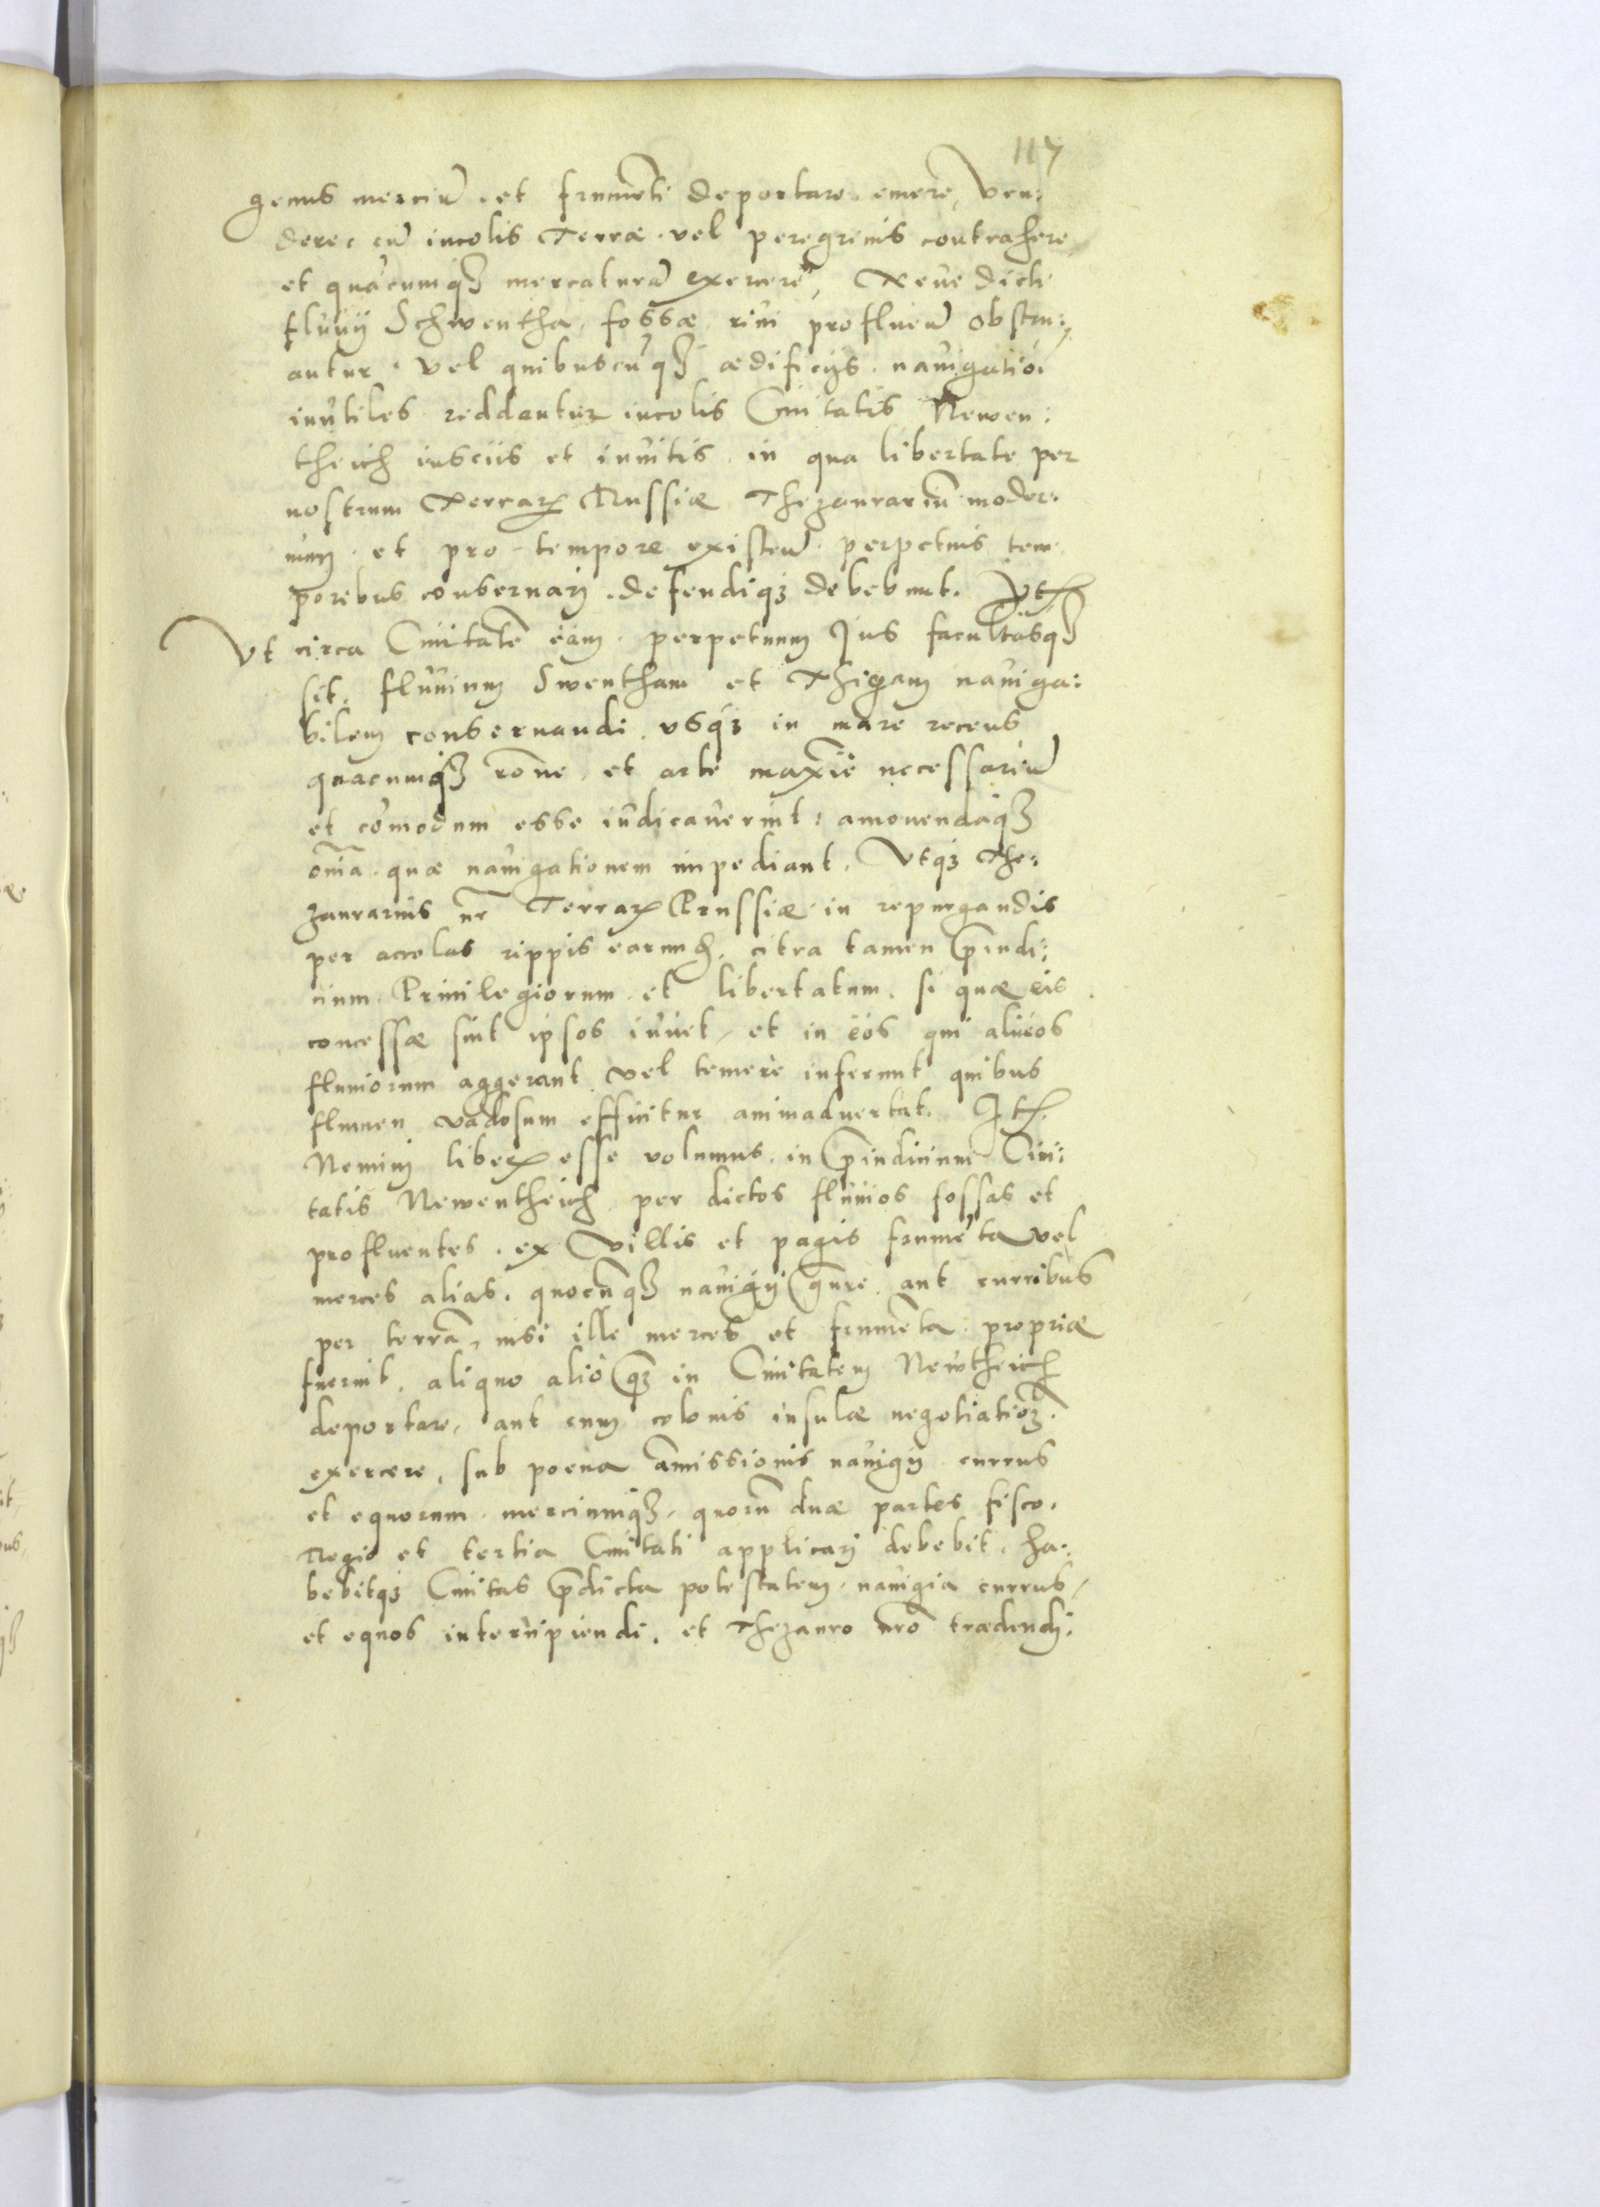 117
genus merciū et frumēti deportare emere, Ven:
dere, cū incolis Terræ vel peregrinis contrahere
et quacumq3 mercaturā exercere, Neve dicti
fluvij Schwentha, fossæ rivi profluen̄ obstru:
antur vel quibuscūq3 ædificijs navigatiōi
inutiles reddantur incolis Civitatis Newen:
theich insciis et invitis in qua libertate per
nostrum Terrar̄ Prussiæ Thezaurariū moder:
num et pro tempore existen̄ perpetuis tem
poribus conservari defendiq3 debebunt. It̄
Ut circa Civitatē eam perpetuum Jus facultasq3
sit, fluvium Swentham et Thigam naviga:
bilem conservandi usq3 in mare recens
quacumq3 rōne et arte maxīe necessariū
et cōmodum esse iudicaverint: amovendaq3
om̄ia quæ navigationem impediant. Utq3 The:
zaurarius n̄r Terrar̄ Prussiæ in repurgandis
per accolas rippis earum, citra tamen p̄iudi:
cium Privilegiorum et libertatum, si quæ eis
concessæ sint ipsos iuvet, et in eos qui alveos
fluviorum aggerant vel temere inferunt quibus
flumen vadosum efficitur animadvertat. It̄.
Nemini liber̄ esse volumus in p̄iudicium Civi:
tatis Newentheich per dictos fluvios fossas et
profluentes, ex Villis et pagis frumēta vel
merces alias, quocūq3 navigij gn̄re aut curribus
per terrā, nisi ille merces et frumēta propriæ
fuerint, aliquo alio q3 in Civitatem Newtheich
deportare, aut cum colonis insulæ negotiatiōe3
exercere, sub poena āmissionis navigij currus
et equorum merciumq3, quorū duæ partes fisco
Regio et tertia Civitati applicari debebit, ha:
bebitq3 Civitas p̄dicta potestatem navigia currus,
et equos intercipiendi, et Thezauro nr̄o tradendi.